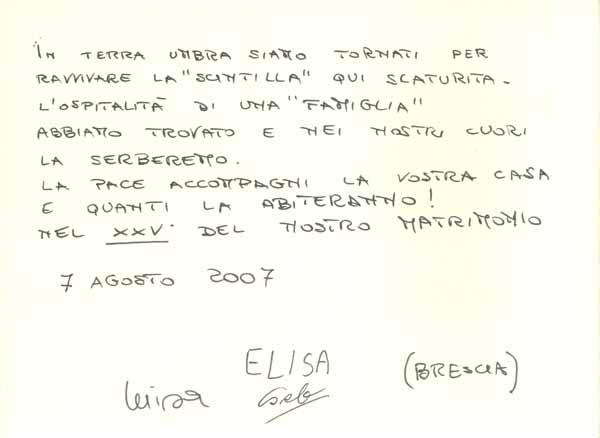 IN TERRA UMBRA SIAMO TORNATI PER
RAVVIVARE LA "SCINTILLA" QUI SCATURITA.
L'OSPITALITÀ DI UNA "FAMIGLIA"
ABBIAMO TROVATO E NEI NOSTRI CUORI
LA SERBEREMO.
LA PACE ACCOMPAGNI LA VOSTRA CASA
E QUANTI LA ABITERANNO!
NEL XXV° DEL NOSTRO MATRIMONIO
7 AGOSTO 2007
ELISA (BRESCIA)
Luisa Carlo